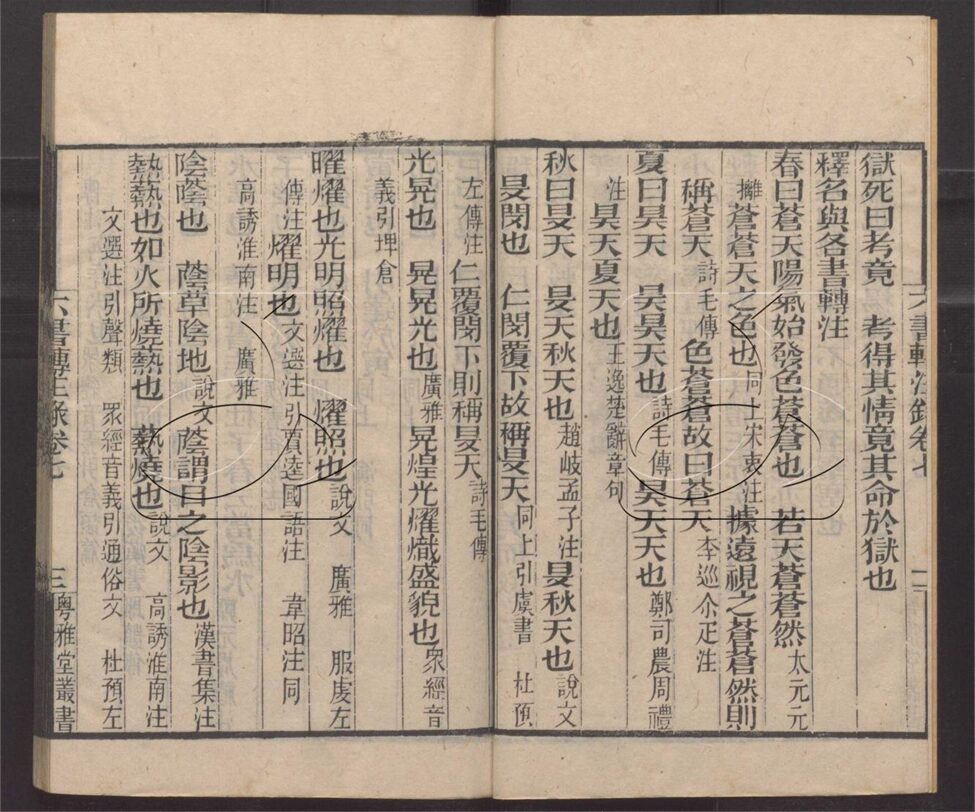 獄死曰考竟 考得其情竟其命於獄也
釋名與各書轉注
春曰蒼天陽氣始發色蒼蒼也 若天蒼蒼然太元元
攡蒼蒼天之色也同上宋衷注據遠視之蒼蒼然則
稱蒼天詩毛傳色蒼蒼故曰蒼天李巡尒疋注
夏曰昊天 昊昊天也詩毛傳昊天天也鄭司農周禮
注昊天夏天也王逸楚辭章句
秋曰旻天 旻天秋天也趙岐孟子注旻秋天也說文
旻閔也 仁閔覆下故稱旻天同上引虞書 杜預
左傳注仁覆閔下則稱旻天詩毛傳
光晃也 晃晃光也廣雅晃煌光燿熾盛貌也眾經音
義引埤倉
曜燿也光明照燿也 燿照也說文 廣雅 服虔左
傳注燿明也文選注引賈逵國語注 韋昭注同
高誘淮南注 廣雅
陰蔭也 蔭草陰地說文蔭謂日之陰影也漢書集注
熱爇也如火所燒熱也 爇燒也說文 高誘淮南注
文選注引聲類 眾經音義引通俗文 杜預左
六書轉注錄卷七 三 粵雅堂叢書